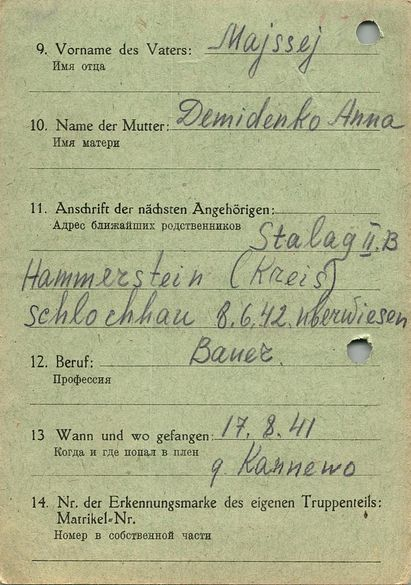 9. Vorname des Vaters: Majssej
Имя отца
10. Name der Mutter: Demidenko Anna
Имя матери
11. Anschrift der nächsten Angehörigen:
Адрес ближайших родственников Stalag II.B
Hammerstein (Kreis)
Schlochhau 8.6.42. überwiesen
12. Beruf: Bauer.
Профессия
13 Wann und wo gefangen: 17.8.41
Когда и где попал в плен
g. Kannewo
14. Nr. der Erkennungsmarke des eigenen Truppenteils:
Matrikel-Nr.
Номер в собственной части